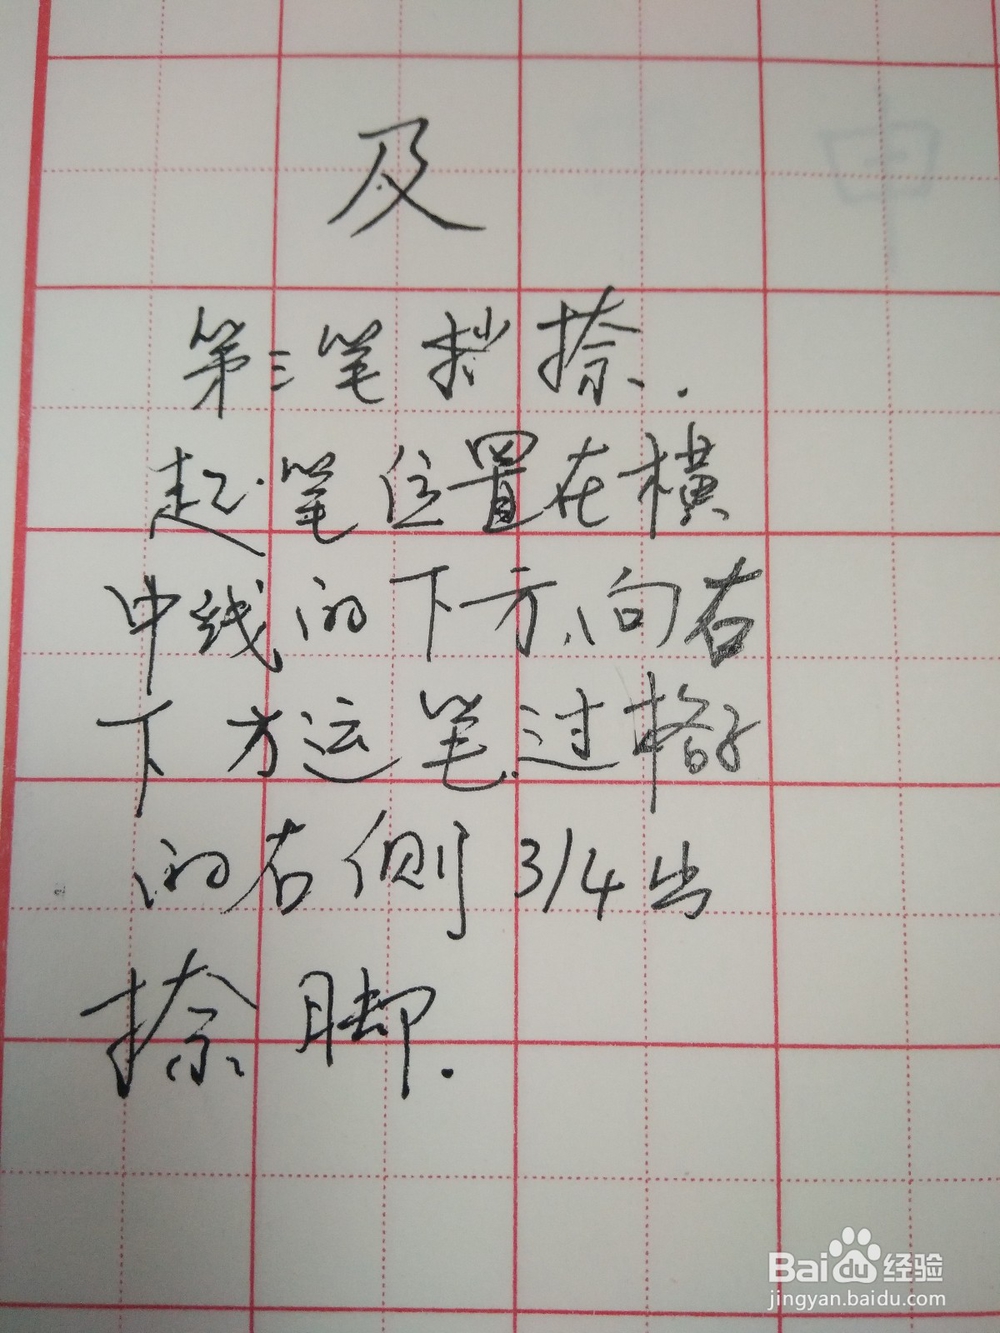 及
第三笔 捺.
起笔位置在横
中线的下方,向右
下方运笔.过格子
的右侧3/4出
捺脚.
Baidu 经验
jingyan.baidu.com